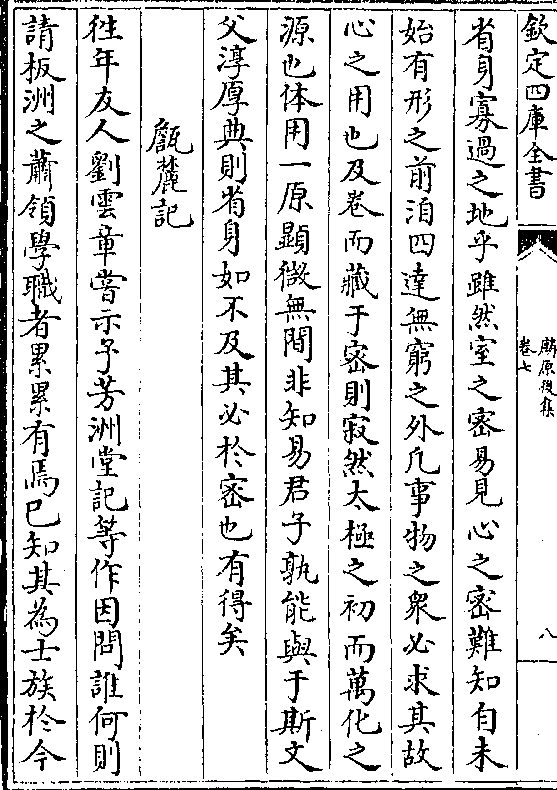 欽定四庫全書
麟原後集
卷七
八
省身寡過之地乎雖然室之密易見心之密難知自未
始有形之前洎四達無窮之外凡事物之衆必求其故
心之用也及卷而藏于密則寂然太極之初而萬化之
源也体用一原顯微無間非知易君子孰能與于斯文
父淳厚典則省身如不及其必於密也有得矣
㼾麓記
徃年友人劉雲章嘗示予芳洲堂記等作因問誰何則
請板洲之蕭領學職者累累有焉已知其為士族於今